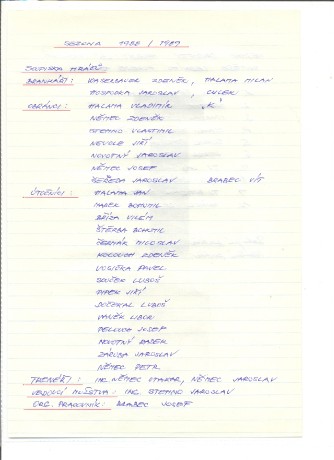 SEZONA 1988 / 1989
SOUPISKA HRÁČŮ
BRANKÁŘI: KAISERBAUER ZDENĚK, HALAMA MILAN
HOSPODKA JAROSLAV, CULEK
OBRÁNCI: HALAMA VLADIMÍR "K"
NĚMEC ZDENĚK
STEHNO VLASTIMIL
NEVOLE JIŘÍ
NOVOTNÝ JAROSLAV
NĚMEC JOSEF
JAROSLAV BRABEC VÍT
ÚTOČNÍCI: HALAMA JAN
BOHUMIL
BŘÍZA VILÉM
ŠTĚRBA BOHUMIL
ČERMÁK MILOSLAV
ZDENĚK
VOSIČKA PAVEL
LUBOŠ
PIPEK JIŘÍ
DOČEKAL LUBOŠ
VANĚK LIBOR
JOSEF
NOVOTNÝ RADEK
ZÁRUBA JAROSLAV
NĚMEC PETR
TRENÉŘI: ING. NĚMEC OTAKAR, NĚMEC JAROSLAV
VEDOUCÍ MUŽSTVA: ING. STEHNO JAROSLAV
ORG. PRACOVNÍK: BRABEC JOSEF